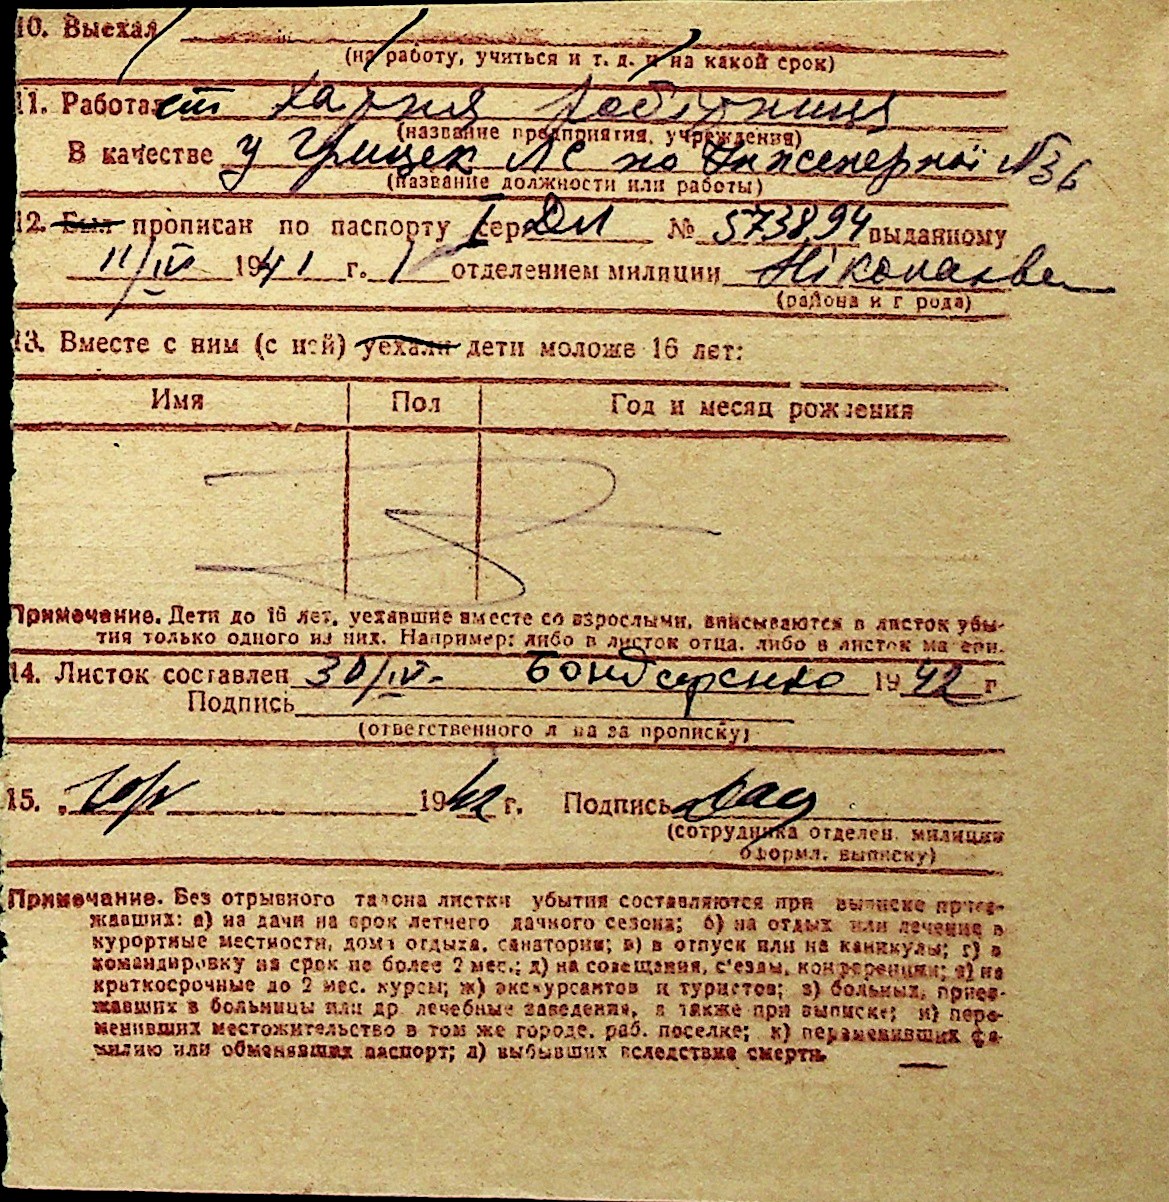 10. Выехал
(на работу, учиться и т. д. и на какой срок)
11. Работает хатня робітниця
(название предприятия, учреждения)
В качестве у Грицек ЛС по Інженерной №36
(название должности или работы)
12. Был прописан по паспорту I сер. ДМ № 573894 выданному
11/IV 1941 г. 1 отделением милиции Ніколаєве
(района и города)
13. Вместе с ним (с ней) уехали дети моложе 16 лет:
Имя Пол Год и месяц рождения
Примечание. Дети до 16 лет, уехавшие вместе со взрослыми, вписываются в листок убы-
тия только одного из них. Например: либо в листок отца, либо в листок матери.
14. Листок составлен 30/IV- Бондаренко 1942 г
Подпись
(ответственного лица за прописку)
15. 1942 г. Подпись
(сотрудника отделен. милиции
оформл. выписку)
Примечание. Без отрывного талона листки убытия составляются при выписке приез-
жавших: а) на дачи на срок летнего дачного сезона; б) на отдых или лечение в
курортные местности, дома отдыха, санатории; в) в отпуск или на каникулы; г) в
командировку на срок не более 2 мес.; д) на совещания, с'езды, конференции; е) на
краткосрочные до 2 мес. курсы; ж) экскурсантов и туристов; з) больных, приез-
жавших в больницы или др. лечебные заведения, а также при выписке; и) пере-
менивших местожительство в том же городе, раб. поселке; к) переменивших фа-
милию или обменявших паспорт; л) выбывших вследствие смерти.